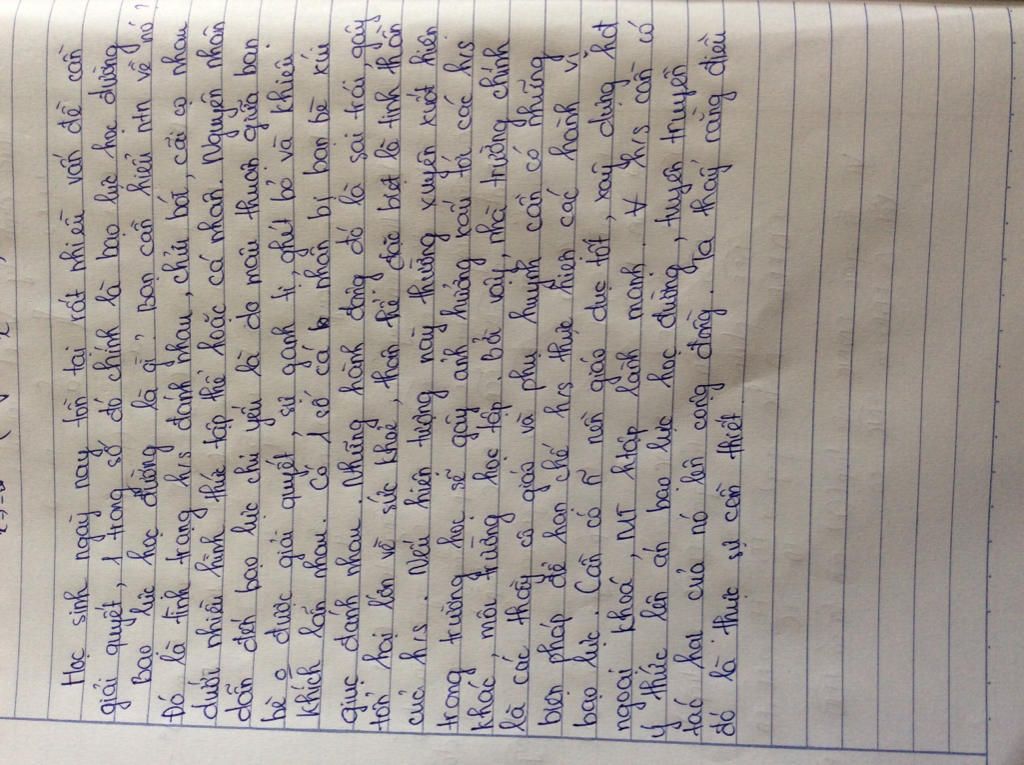 Học sinh ngày nay tồn tại rất nhiều vấn đề cần
giải quyết, 1 trong số đó chính là bạo lực học đường
Bạo lực học đường là gì? Bạn cần hiểu ntn về nó?
Đó là tình trạng h/s đánh nhau, chửi bới, cãi cọ nhau
dưới nhiều hình thức tập thể hoặc cá nhân. Nguyên nhân
dẫn đến bạo lực chủ yếu là do mâu thuẫn giữa bạn
bè o được giải quyết, sự ganh tị, ghét bỏ và khiêu
khích lẫn nhau. Có 1 số cá nhân bị bạn bè xúi
giục đánh nhau. Những hành động đó là sai trái, gây
tổn hại lớn về sức khoẻ, thân thể đặc biệt là tinh thần
của h/s. Nếu hiện tượng này thường xuyên xuất hiện
trong trường học sẽ gây ảnh hưởng xấu tới các h/s
khác, môi trường học tập. Bởi vậy, nhà trường chính
là các thầy cô giáo và phụ huynh cần có những
biện pháp để hạn chế h/s thực hiện các hành vi
bạo lực. Cần có nền giáo dục tốt, xây dựng hđ
ngoại khoá, MT htập lành mạnh. ∀ h/s cần có
ý thức lên án bạo lực học đường, tuyên truyền
tác hại của nó lên cộng đồng. Ta thấy rằng điều
đó là thực sự cần thiết.